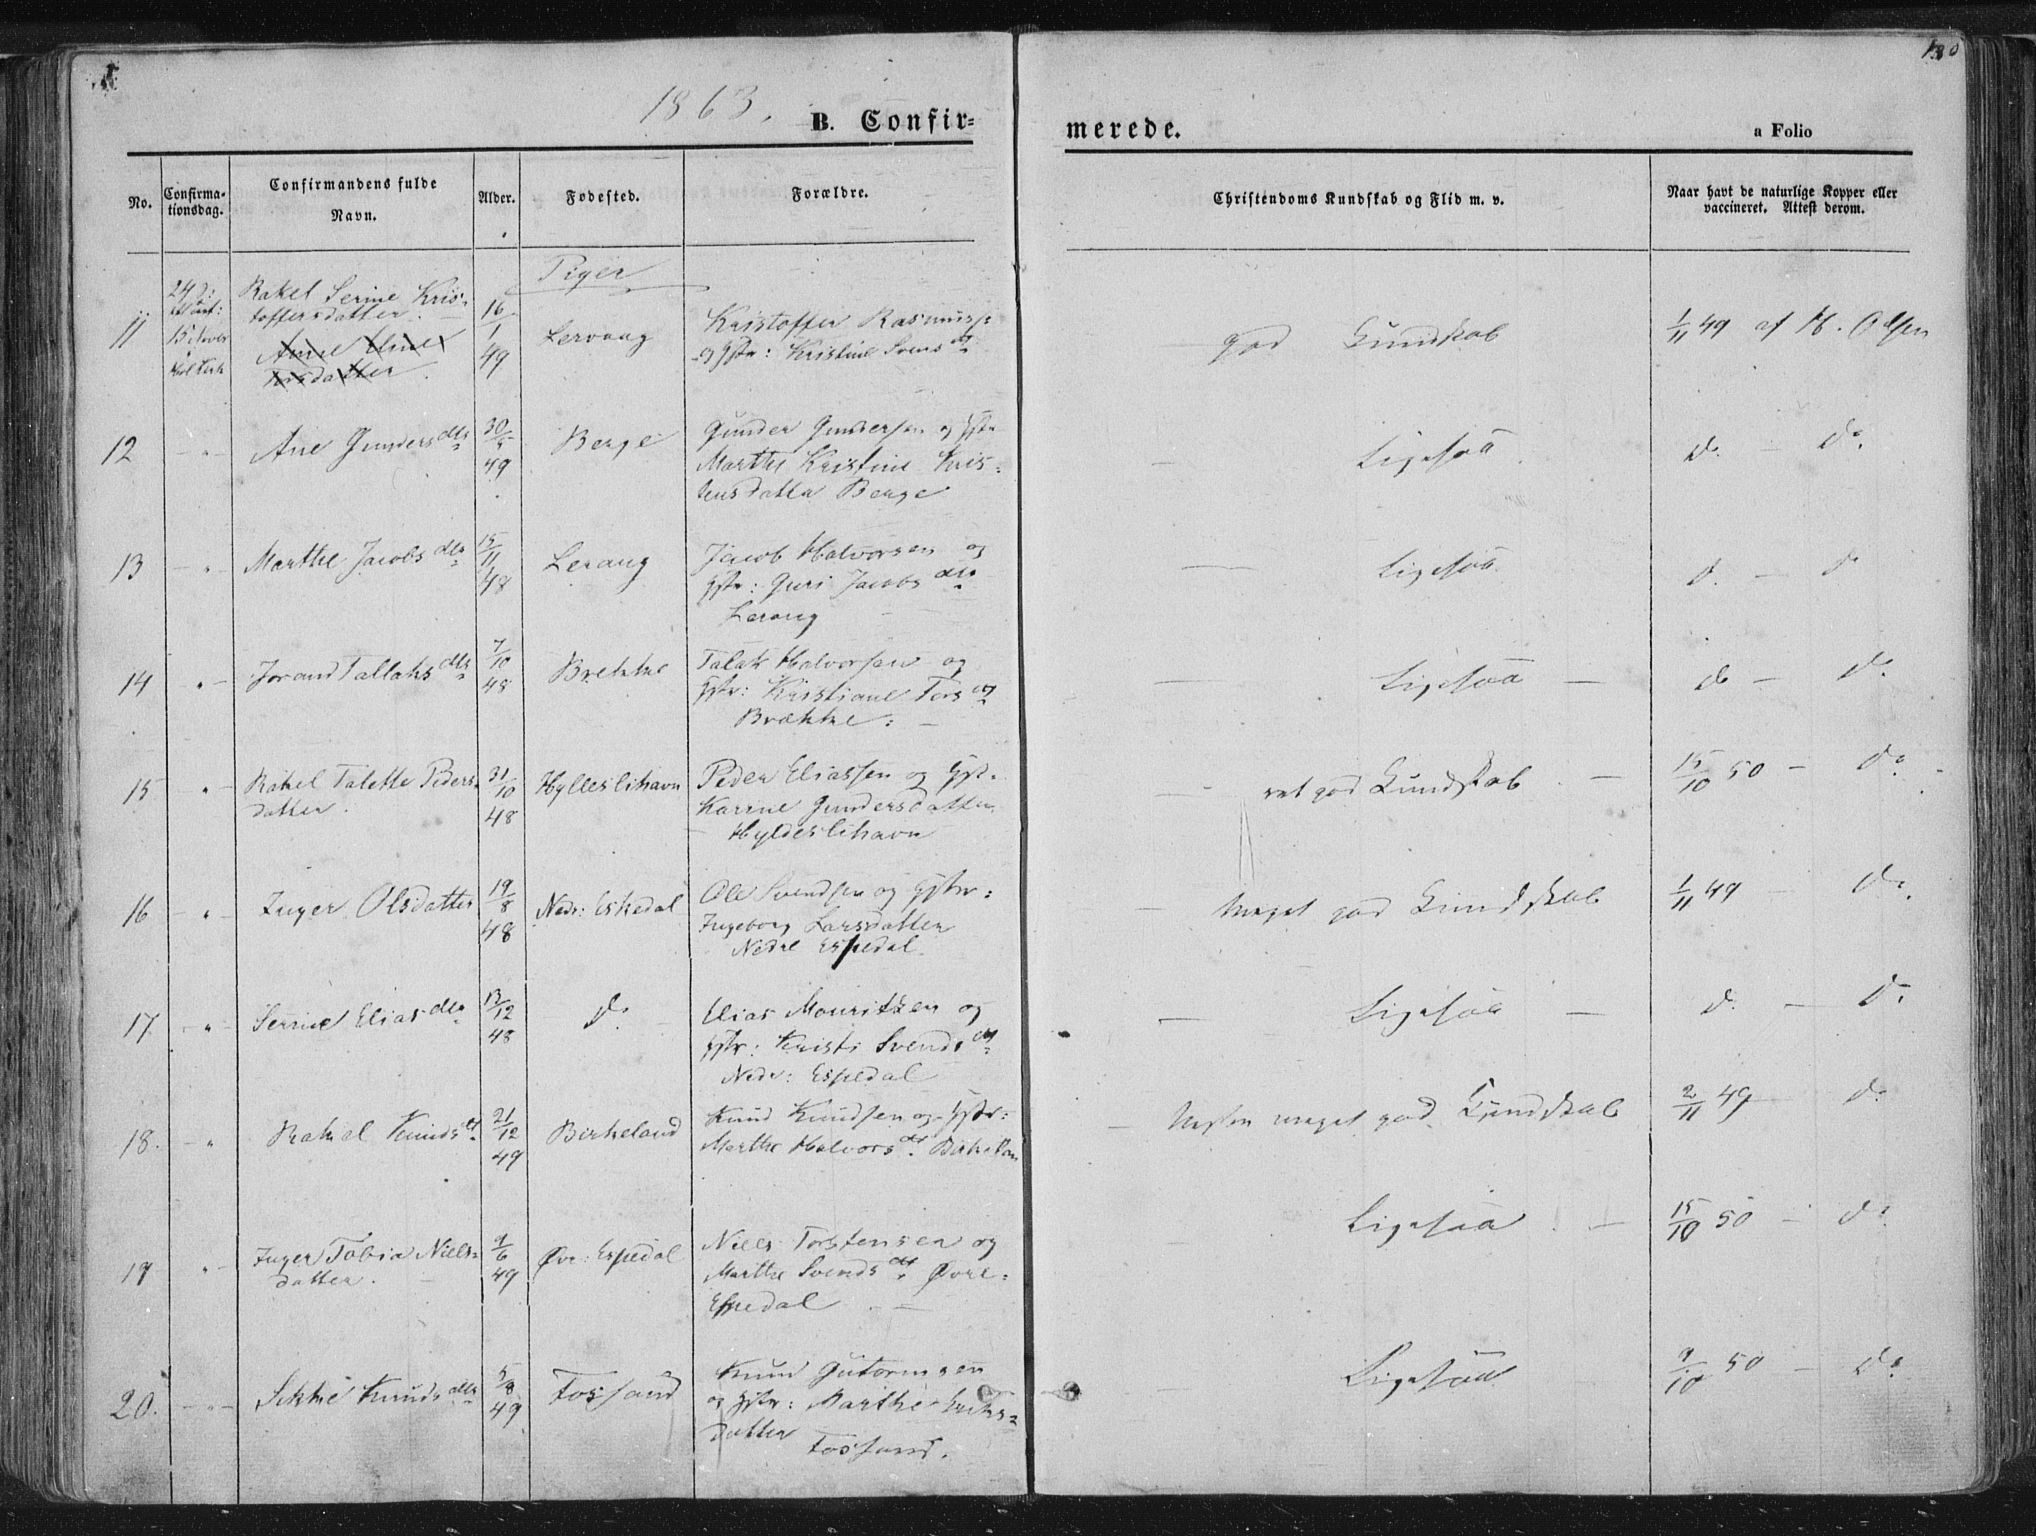 130
1863.
B. Confir-
merede.
a Folio
No.
Confirma-
tionsdag.
Confirmandens fulde
Navn.
Alder.
Fødested.
Forældre.
Christendoms Kundskab og Flid m. v.
Naar havt de naturlige Kopper eller
vaccineret. Attest derom.
Piger
11
15 Novbr
Rakel Serine Kris-
toffersdatter.
16/1 49
Lervaag
Kristoffer Rasmuss:
og Hstr: Kristine Svensdtr
god Kundskab
1/11 49 af H. Olsen
12 - " -
Ane Gundersdtr
30/5 49
Berge
Gunder Gundersen og Hstr
Marthe Kristine Kris-
tensdatter Berge
- Ligesaa
do - do
13 - " -
Marthe Jacobsdtr
15/11 48
Lerang
Jacob Halvorsen og
Hstr: Guri Jacobsdtr
Lerang
- Ligesaa
do - do
14 - " -
Jorand Tallaksdtr
7/10 48
Brekke
Talak Halvorsen og
Hstr: Kristiane Torsdtr
Brække.
- Ligesaa -
do - do
15 - " -
Rakel Talette Peders-
datter.
31/10 48
Hylleslihavn
Peder Eliassen og Hstr.
Karine Gundersdatter
Hyldeslihavn
- ret god Kundskab. -
15/10 50 - do
16 - " -
Inger Olsdatter
19/8 48
Nedr: Eskedal
Ole Svendsen og Hstr:
Ingeborg Larsdatter
Nedre Espedal
- Meget god Kundskab
1/11 49 - do
17. - " -
Serine Eliasdtr
13/12 48
do
Elias Mouritzen og
Hstr: Kristi Svendsdtr
Nedr: Espedal
- Ligesaa -
do - do
18. "
Rakel Knudsdt.
21/12 49
Birkeland
Knud Knudsen og Hstr:
Marthe Halvorsdt.
- Nesten meget god Kundskab
2/11 49 do
19 - " -
Inger Tobia Niels-
datter.
9/6 49
Øvr: Espedal
Niels Torstensen og
Marthe Svendsdt. Øvre-
Espedal
Ligesaa -
15/10 50 - do
20. - " -
Sikke Knudsdtr
5/8 49
Fossand
Knud Gutormsen
og Hstr: Marthe
datter Fossand.
Ligesaa
9/10 50 - do